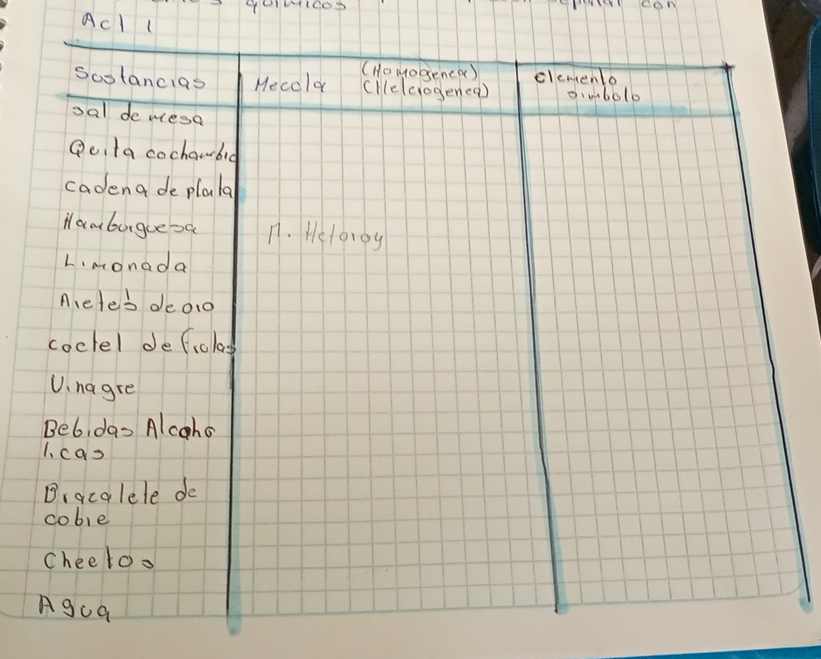 químicos
con
Act 1
Sustancias Mezcla (Homogenea) (Heterogenea) elemento simbolo
sal de mesa
Quita cochambre
cadena de plata
Hamburguesa M. Heterog
Limonada
Aretes de oro
coctel de frutas
Vinagre
Bebidas Alcoho
licas
Bracalete de
cobre
Cheetos
Agua